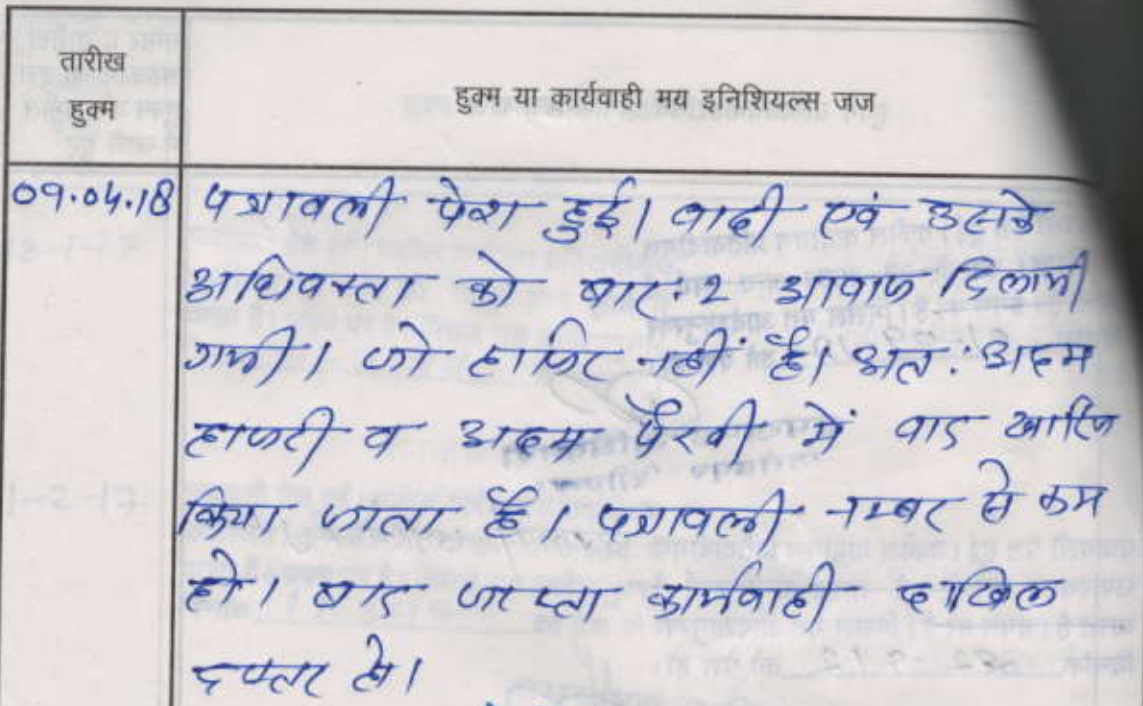 तारीख
हुक्म
हुक्म या कार्यवाही मय इनिशियल्स जज
09.04.18 पत्रावली पेश हुई। वादी एवं उसके
अधिवक्ता को बार-2 आवाज दिलायी
गयी। जो हाजिर नहीं है। अत. अदम
हाजरी व अदम पैरवी में वाद खारिज
किया जाता है। पत्रावली नम्बर से कम
हो। बाद जाप्ता कार्यवाही दाखिल
दफ्तर हो।